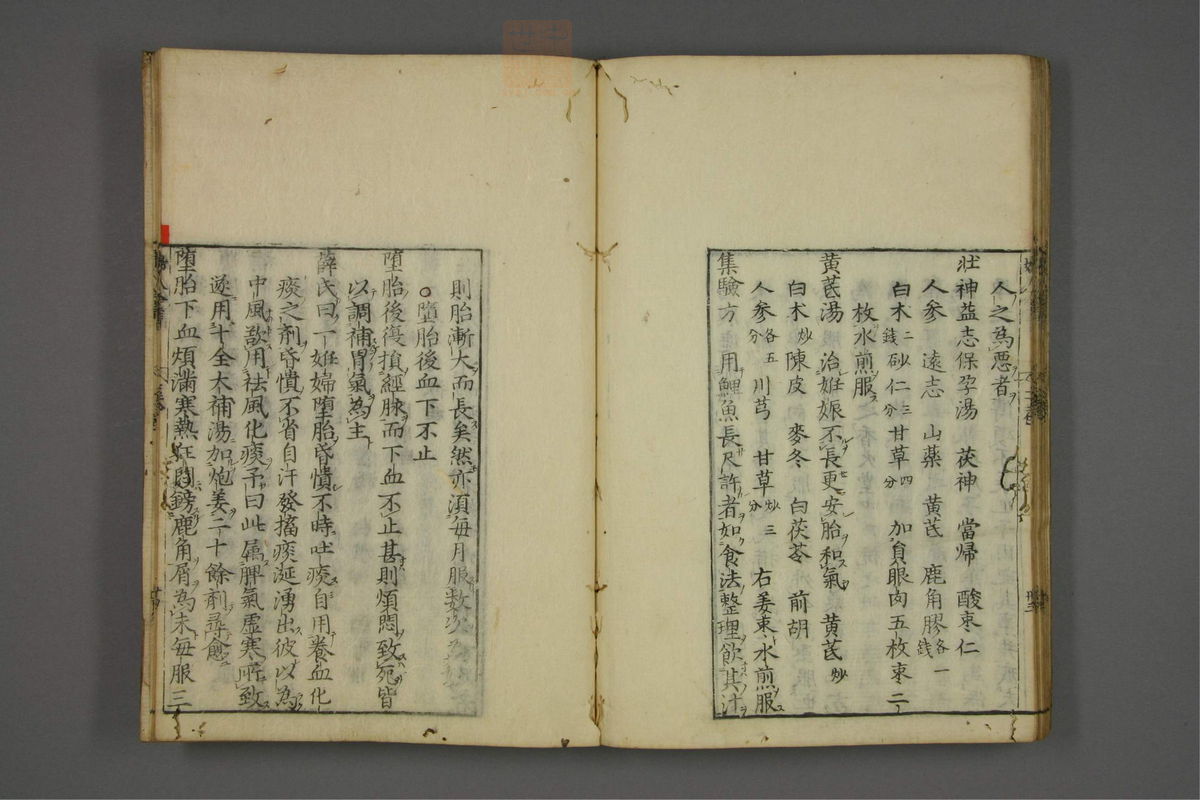 人之為悪者
壮神益志保孕湯 茯神 當帰 酸枣仁
人参 遠志 山薬 黄芪 鹿角膠各一錢
白朮二錢 砂仁三分 甘草四分 加貟眼肉五枚枣二
枚水煎服
黄芪湯 治姙娠不長更安胎和氣 黄芪炒
白朮炒 陳皮 麥冬 白茯苓 前胡
人参各五分 川芎 甘草炒三分 右姜枣水煎服
集驗方 用鯉魚長尺許者如食法整理飲其汁
則胎漸大而長矣然亦須毎月服数次
○墮胎後血下不止
堕胎後復損經脉而下血不止甚則煩悶致死皆
以調補胃氣為主
薛氏曰一姙婦堕胎昏憒不時吐痰自用養血化
痰之剤昏憒不省自汗發搐痰涎湧出彼以為
中風欲用祛風化痰予曰此属脾氣虚寒所致
遂用十全大補湯加炮姜二十餘剤尋愈
堕胎下血煩滿寒熱狂悶鎊鹿角屑為末毎服三